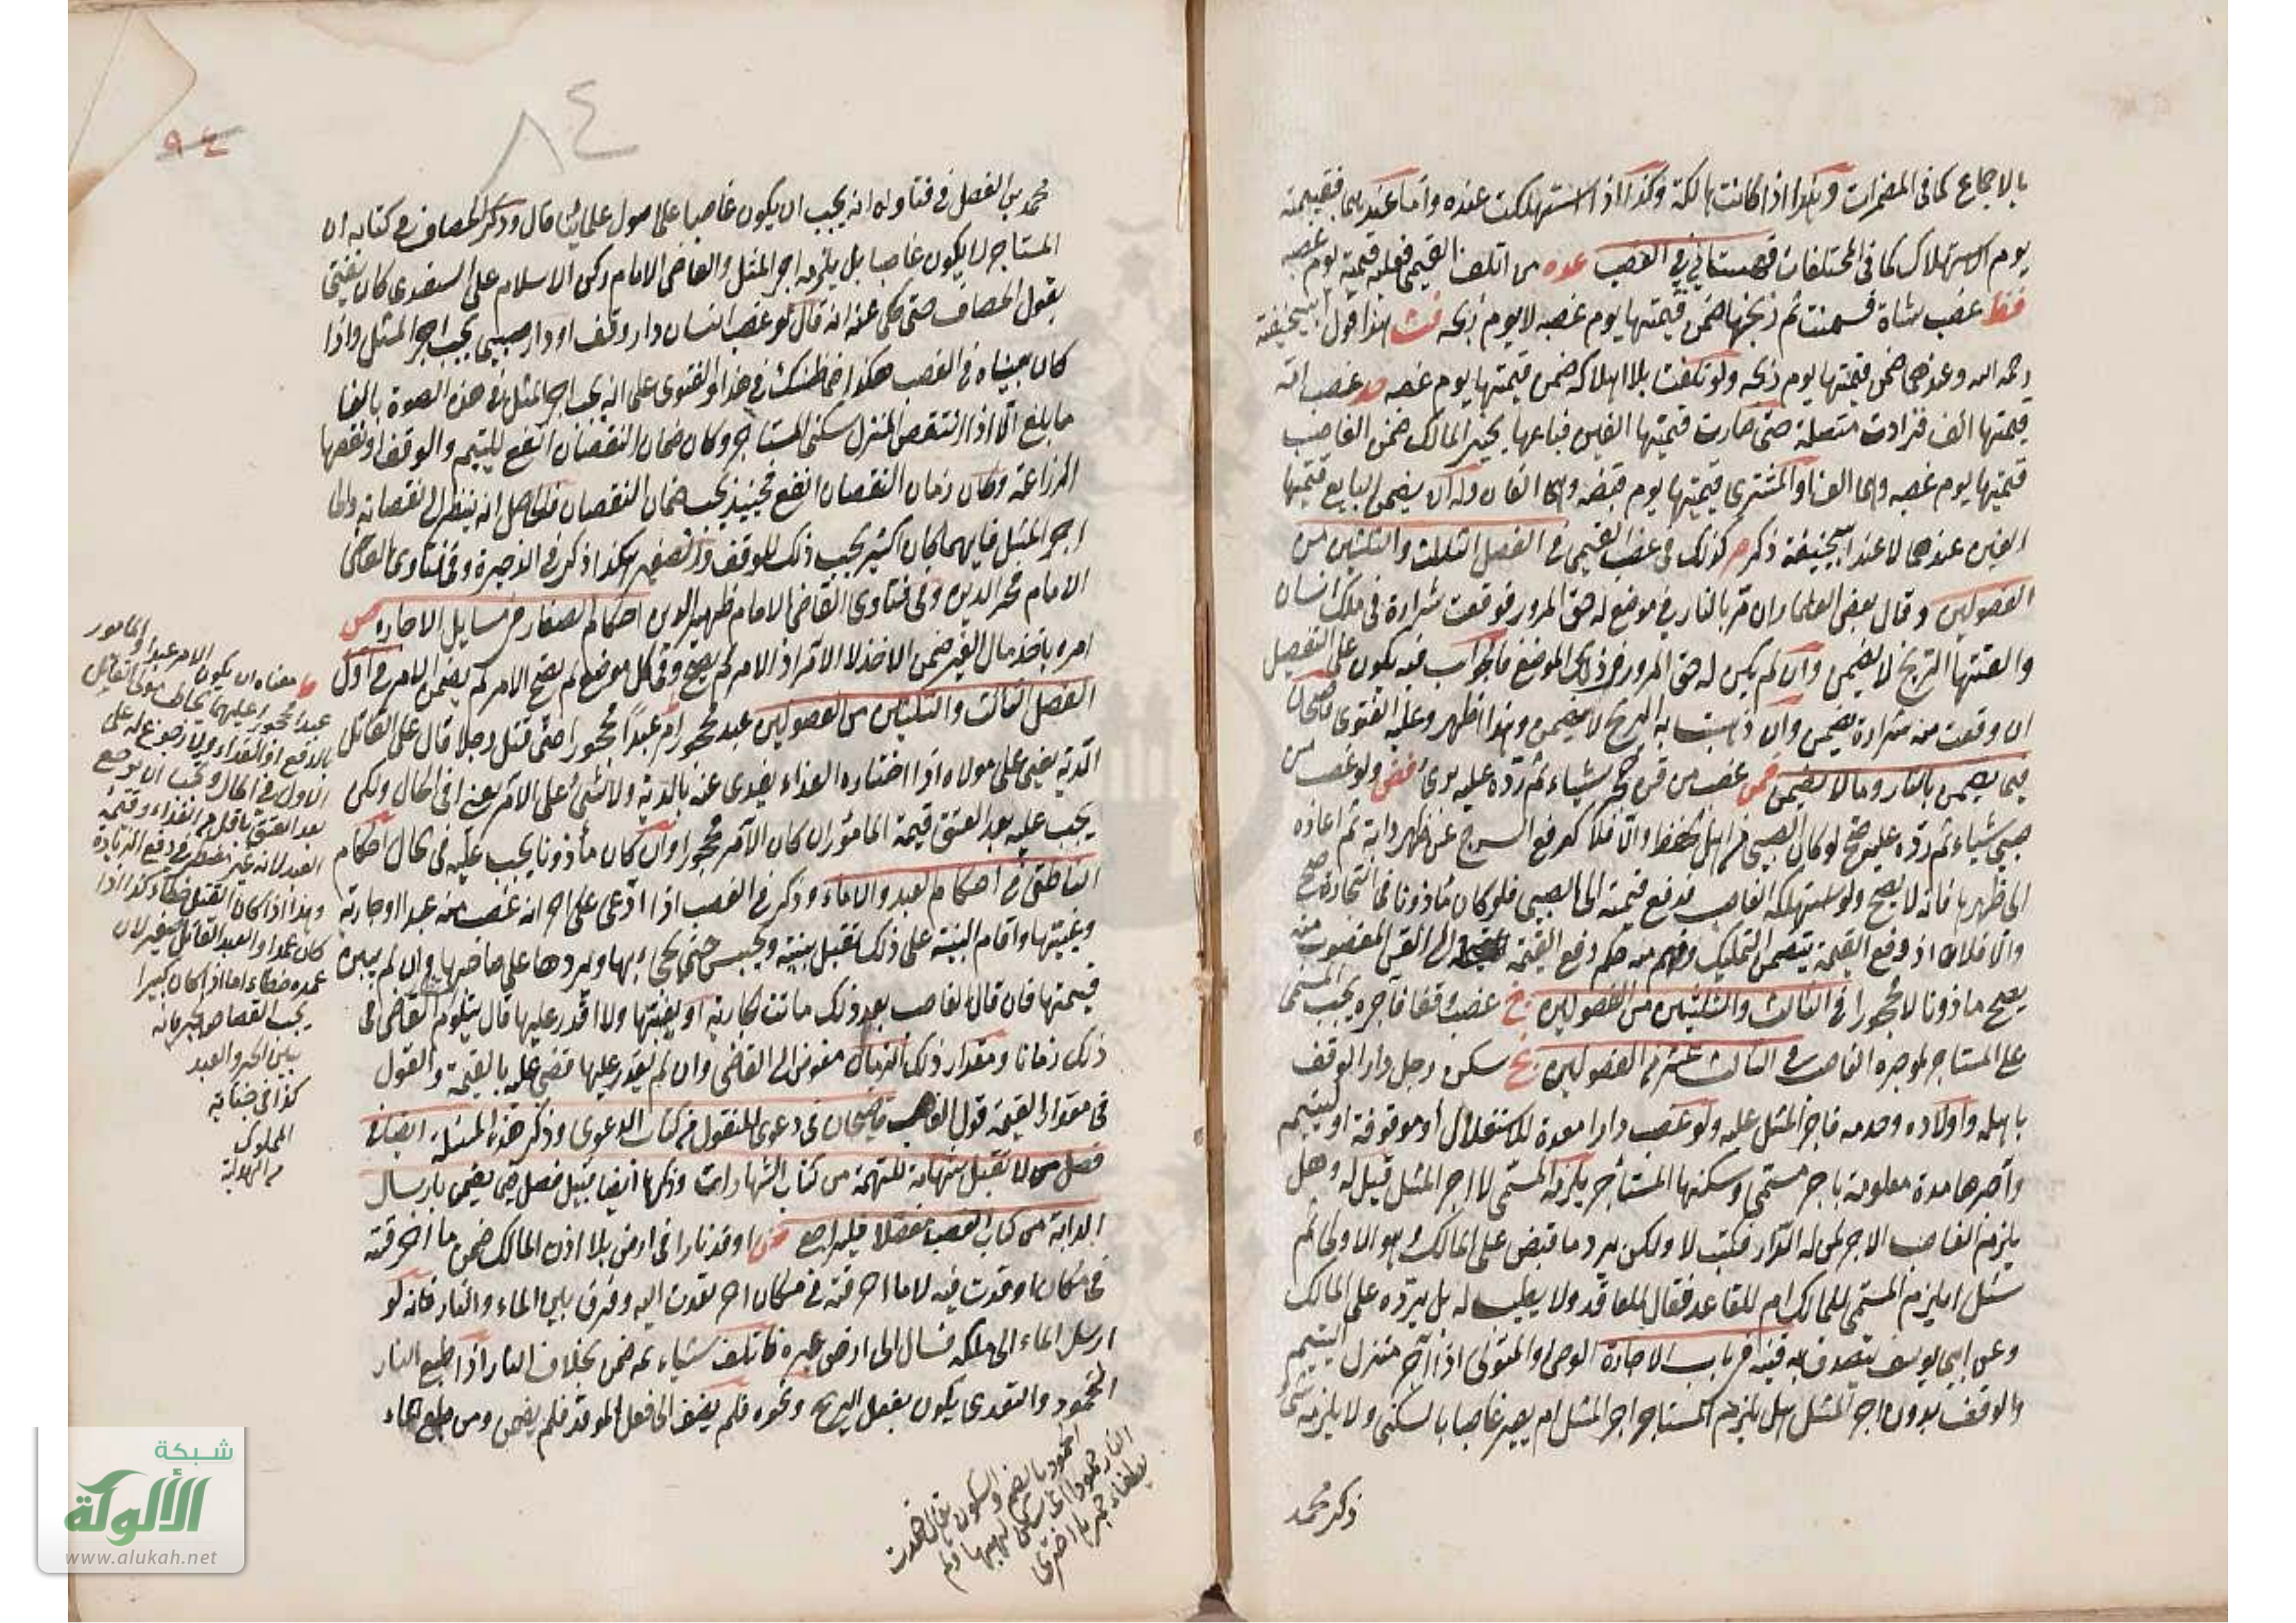 بالاجماع كما فى المضمرات وهكذا اذا كانت هالكة وكذا اذا استهلكت عنده واما عندهما فقيمته
يوم الاستهلاك كما فى المختلفات قهستانى فى الغصب عده من اتلف القيمى فعليه قيمته يوم غصبه
فقط غصب شاة فسمنت ثم ذبحها ضمن قيمتها يوم غصبه لا يوم ذبحه فث هذا قول ابيحنيفة
رحمه الله وعندهما ضمن قيمتها يوم ذبحه ولو تلفت بلا اهلاكه ضمن قيمتها يوم غصبه غصب امة
قيمتها الف فزادت متصلة حتى صارت قيمتها الفين فباعها يخير المالك ضمن الغاصب
قيمتها يوم غصبه وهى الف او المشترى قيمتها يوم قبضه وهى الفان وله ان يضمن البايع قيمتها
الفين عندهما لا عند ابيحنيفة ذكره كذلك فى غصب القيمى فى الفصل الثالث والثلثين من
الفصولين وقال بعض العلماء ان مر بالنار فى موضع له حق المرور فوقعت شرارة فى ملك انسان
او القتها الريح لا يضمن وان لم يكن له حق المرور فى ذلك الموضع فالجواب فيه يكون على التفصيل
ان وقعت منه شرارة يضمن وان ذهبت به الريح لا يضمن وهذا اظهر وعليه الفتوى قاضيخان
فيما يضمن بالنار وما لا يضمن غصب من قن محجر شياء ثم رده عليه برئ ولو غصب من
صبى شياء ثم رده عليه صح لو كان الصبى من اهل الحفظ والا فلا كمن رفع السرج عن ظهر دابة ثم اعاده
الى ظهرها فانه لا يصح ولو استهلكه الغاصب فدفع قيمته الى الصبى فلو كان مأذونا فى التجارة صح
والا فلا اذ دفع القيمة يتضمن التمليك وفهم منه حكم دفع القيمة الى القن المغصوب منه
يصح ماذونا لا محجورا فى الثالث والثلثين من الفصولين غصب وقفا فآجره يجب المسمى
على المستاجر لموجره الغاصب فى الثالث عشر من الفصولين سكن رجل دار الوقف
باهله واولاده وخدمه فاجر المثل عليه ولو غصب دارا معدة للاستغلال او موقوفة او ليتيم
وآجرها مدة معلومة باجر مسمى وسكنها المستأجر يلزمه المسمى لا اجر المثل قيل له وهل
يلزم الغاصب الاجر لمن له الدار فكتب لا ولكن يرد ما قبض على المالك وهو الاولى ثم
سئل ايلزم المسمى للمالك ام للعاقد فقال للعاقد ولا يطيب له بل يرده على المالك
وعن ابى يوسف يتصدق به قنيه فى باب الاجارة الوصى او المتولى اذا آجر منزل اليتيم
والوقف بدون اجر المثل هل يلزم المستاجر اجر المثل ام يصير غاصبا بالسكنى ولا يلزمه شئ
ذكر محمد
٨٤
٩٤
محمد بن الفضل فى فتاويه انه يجب ان يكون غاصبا على اصول علمائنا قال وذكر الخصاف فى كتابه ان
المستاجر لا يكون غاصبا بل يلزمه اجر المثل والقاضى الامام ركن الاسلام على السغدى كان يفتى
بقول الخصاف حتى حكى عنه انه قال لو غصب انسان دار وقف او دار صبى يجب اجر المثل واذا
كان بعيناه فى الغصب هكذا فما ظنك فى هذا والفتوى على انه يجب اجر المثل فى هذه الصورة بالغا
ما بلغ الا اذا انتقص المنزل بسكنى المستاجر وكان ضمان النقصان انفع لليتيم والوقف او نقصها
المزراعة وكان ضمان النقصان انفع فحينئذ يجب ضمان النقصان فالحاصل انه ينظر الى نقصانه والى
اجر المثل فايهما كان اكثر يجب ذلك للوقف والصغير هكذا ذكر فى الذخيرة وفى فتاوى القاضى
الامام فخر الدين وفى فتاوى القاضى الامام ظهير الدين احكام الصغار فى مسايل الاجاره
امره باخذ مال الغير ضمن الاخذ لا الآمر اذ الامر لم يصح وفى كل موضع لم يصح الامر لم يضمن الامر فى اول
الفصل الثالث والثلثين من الفصولين عبد محجور امر عبدا محجورا حتى قتل رجلا قال على القاتل
الدية يعنى على مولاه اذا اختاره الفداء يفدى عنه بالدية ولا شئ على الآمر يعنى فى الحال ولكن
يجب عليه بعد العتق قيمة المامور ان كان الآمر محجورا وان كان مأذونا يجب عليه فى الحال احكام
الناطفى فى احكام العبد والاماء وذكر فى الغصب اذا ادعى على اخر انه غصب منه عبدا او جارية
وغيبتها واقام البينة على ذلك تقبل بينته ويحبس حتى يجئ بها ويردها على صاحبها وان لم يبين
قيمتها فان قال الغاصب بعد ذلك ماتت الجارية او بعتها ولا اقدر عليها قال يتلوم القاضى فى
ذلك زمانا ومقدار ذلك الزمان مفوض الى القاضى وان لم يقدر عليها قضى عليه بالقيمة والقول
فى مقدار القيمة قول الغاصب قاضيخان فى دعوى المنقول من كتاب الدعوى وذكر هذه المسئلة ايضا فى
فصل من لا تقبل شهادته للتهمة من كتاب الشهادات وذكرها ايضا قبيل فصل فيما يضمن بارسال
الدابة من كتاب الغصب مفصلا فليراجع اوقد نارا فى ارض بلا اذن المالك ضمن ما احرقته
فى مكان اوقدت فيه لا ما احرقته فى مكان اخر تعدت اليه وفرق بين الماء والنار فانه لو
ارسل الماء الى ملكه فسال الى ارض غيره فاتلف شياء ثمه ضمن بخلاف النار اذا طبع النار
الخمود والتعدى يكون بفعل الريح ونحوه فلم يضف الى فعل الموقد فلم يضمن ومن طبع الماء
معناه ان يكون الامر عبدا والمامور
عبدا محجورا عليهما يخاطب مولى القاتل
بالدفع او الفداء ولا رجوع له على
الاول فى الحال ويجب ان يرجع
بعد العتق باقل من الفداء وقيمة
العبد لانه غير مضطر فى دفع الزيادة
وهذا اذا كان القتل خطاء وكذا اذا
كان عمدا والعبد القاتل صغير لان
عمده خطاء اما اذا كان كبيرا
يجب القصاص لجريانه
بين الحر والعبد
كذا فى جناية
المملوك
من الهداية
الخمود بالضم والسكون يقال خمدت
النار خمودا اذا سكن لهبها ولم
يطفأ جمرها اخترى
شبكة
الألوكة
www.alukah.net